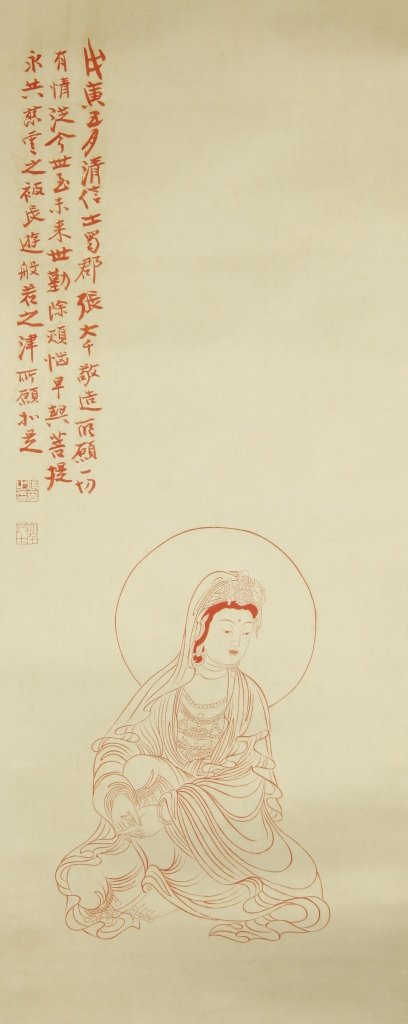 戊寅五月清信士蜀郡張大千敬造所願一切
有情從今世至未来世勤除煩惱早契菩提
永共慈雲之被長遊般若之津所願如是